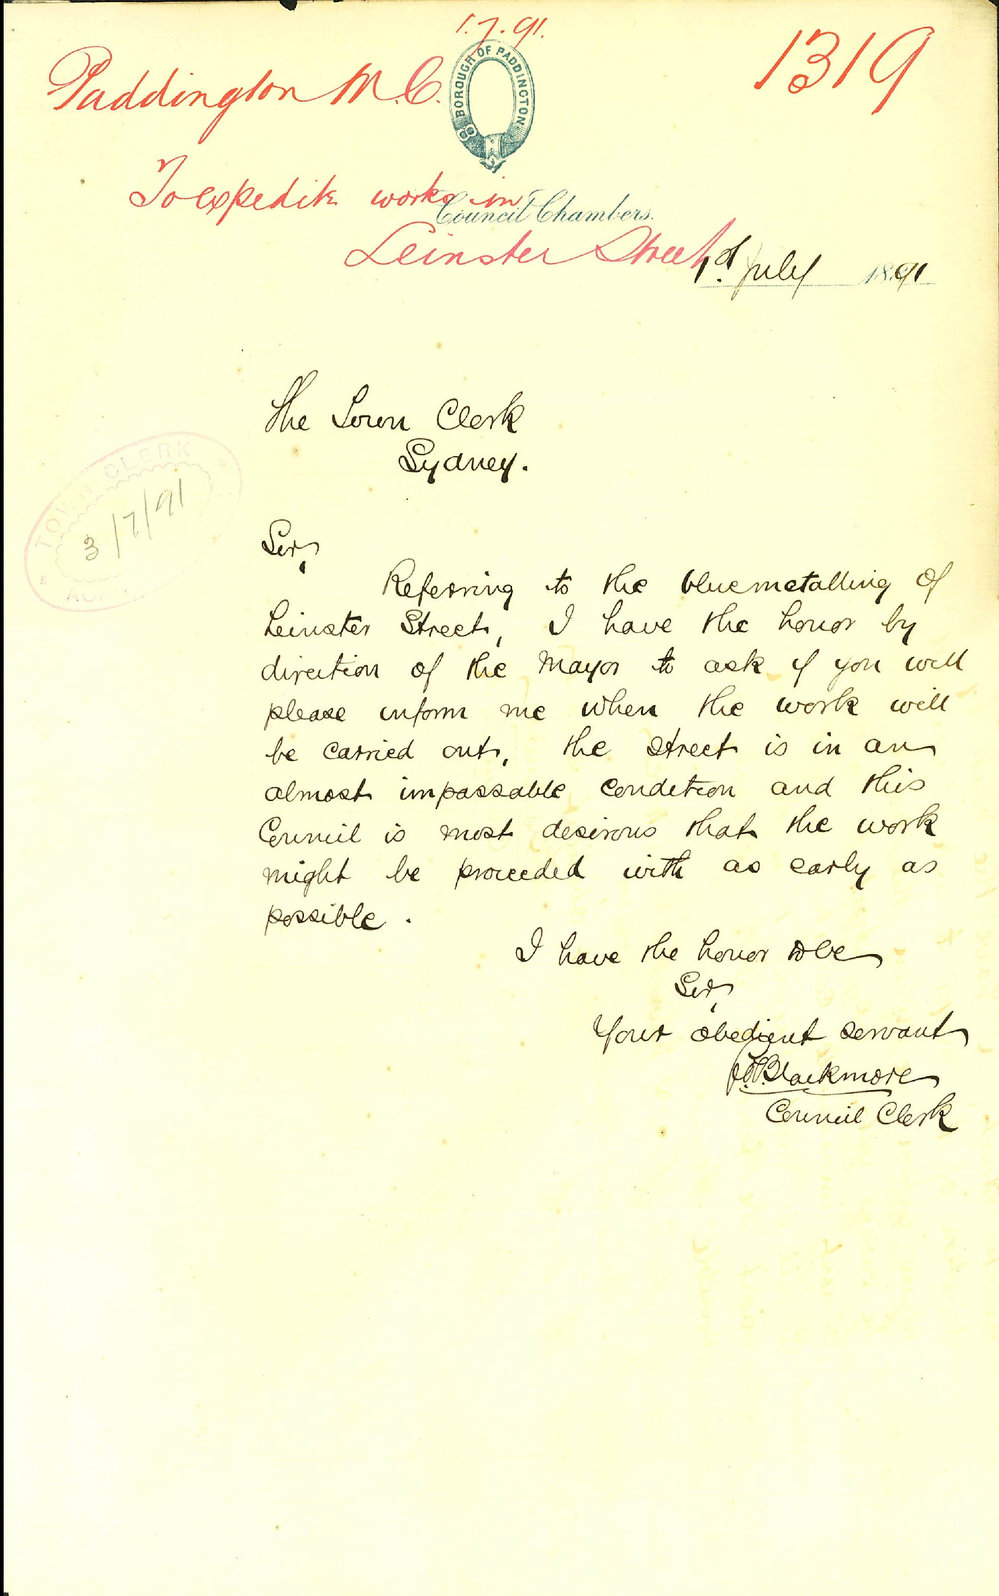 1.7.91.
Paddington M.C.
1319
BOROUGH OF PADDINGTON
To expedite works in
Council Chambers.
Leinster Street
1st July 1891
The Town Clerk
Sydney.
TOWN CLERK
3/7/91
Sir,
Referring to the bluemetalling of
Leinster Street, I have the honor by
direction of the Mayor to ask if you will
please inform me when the work will
be carried out, the street is in an
almost impassable condition and this
Council is most desirous that the work
might be proceeded with as early as
possible.
I have the honor to be
Sir,
Your obedient servant
Blackmore
Council Clerk